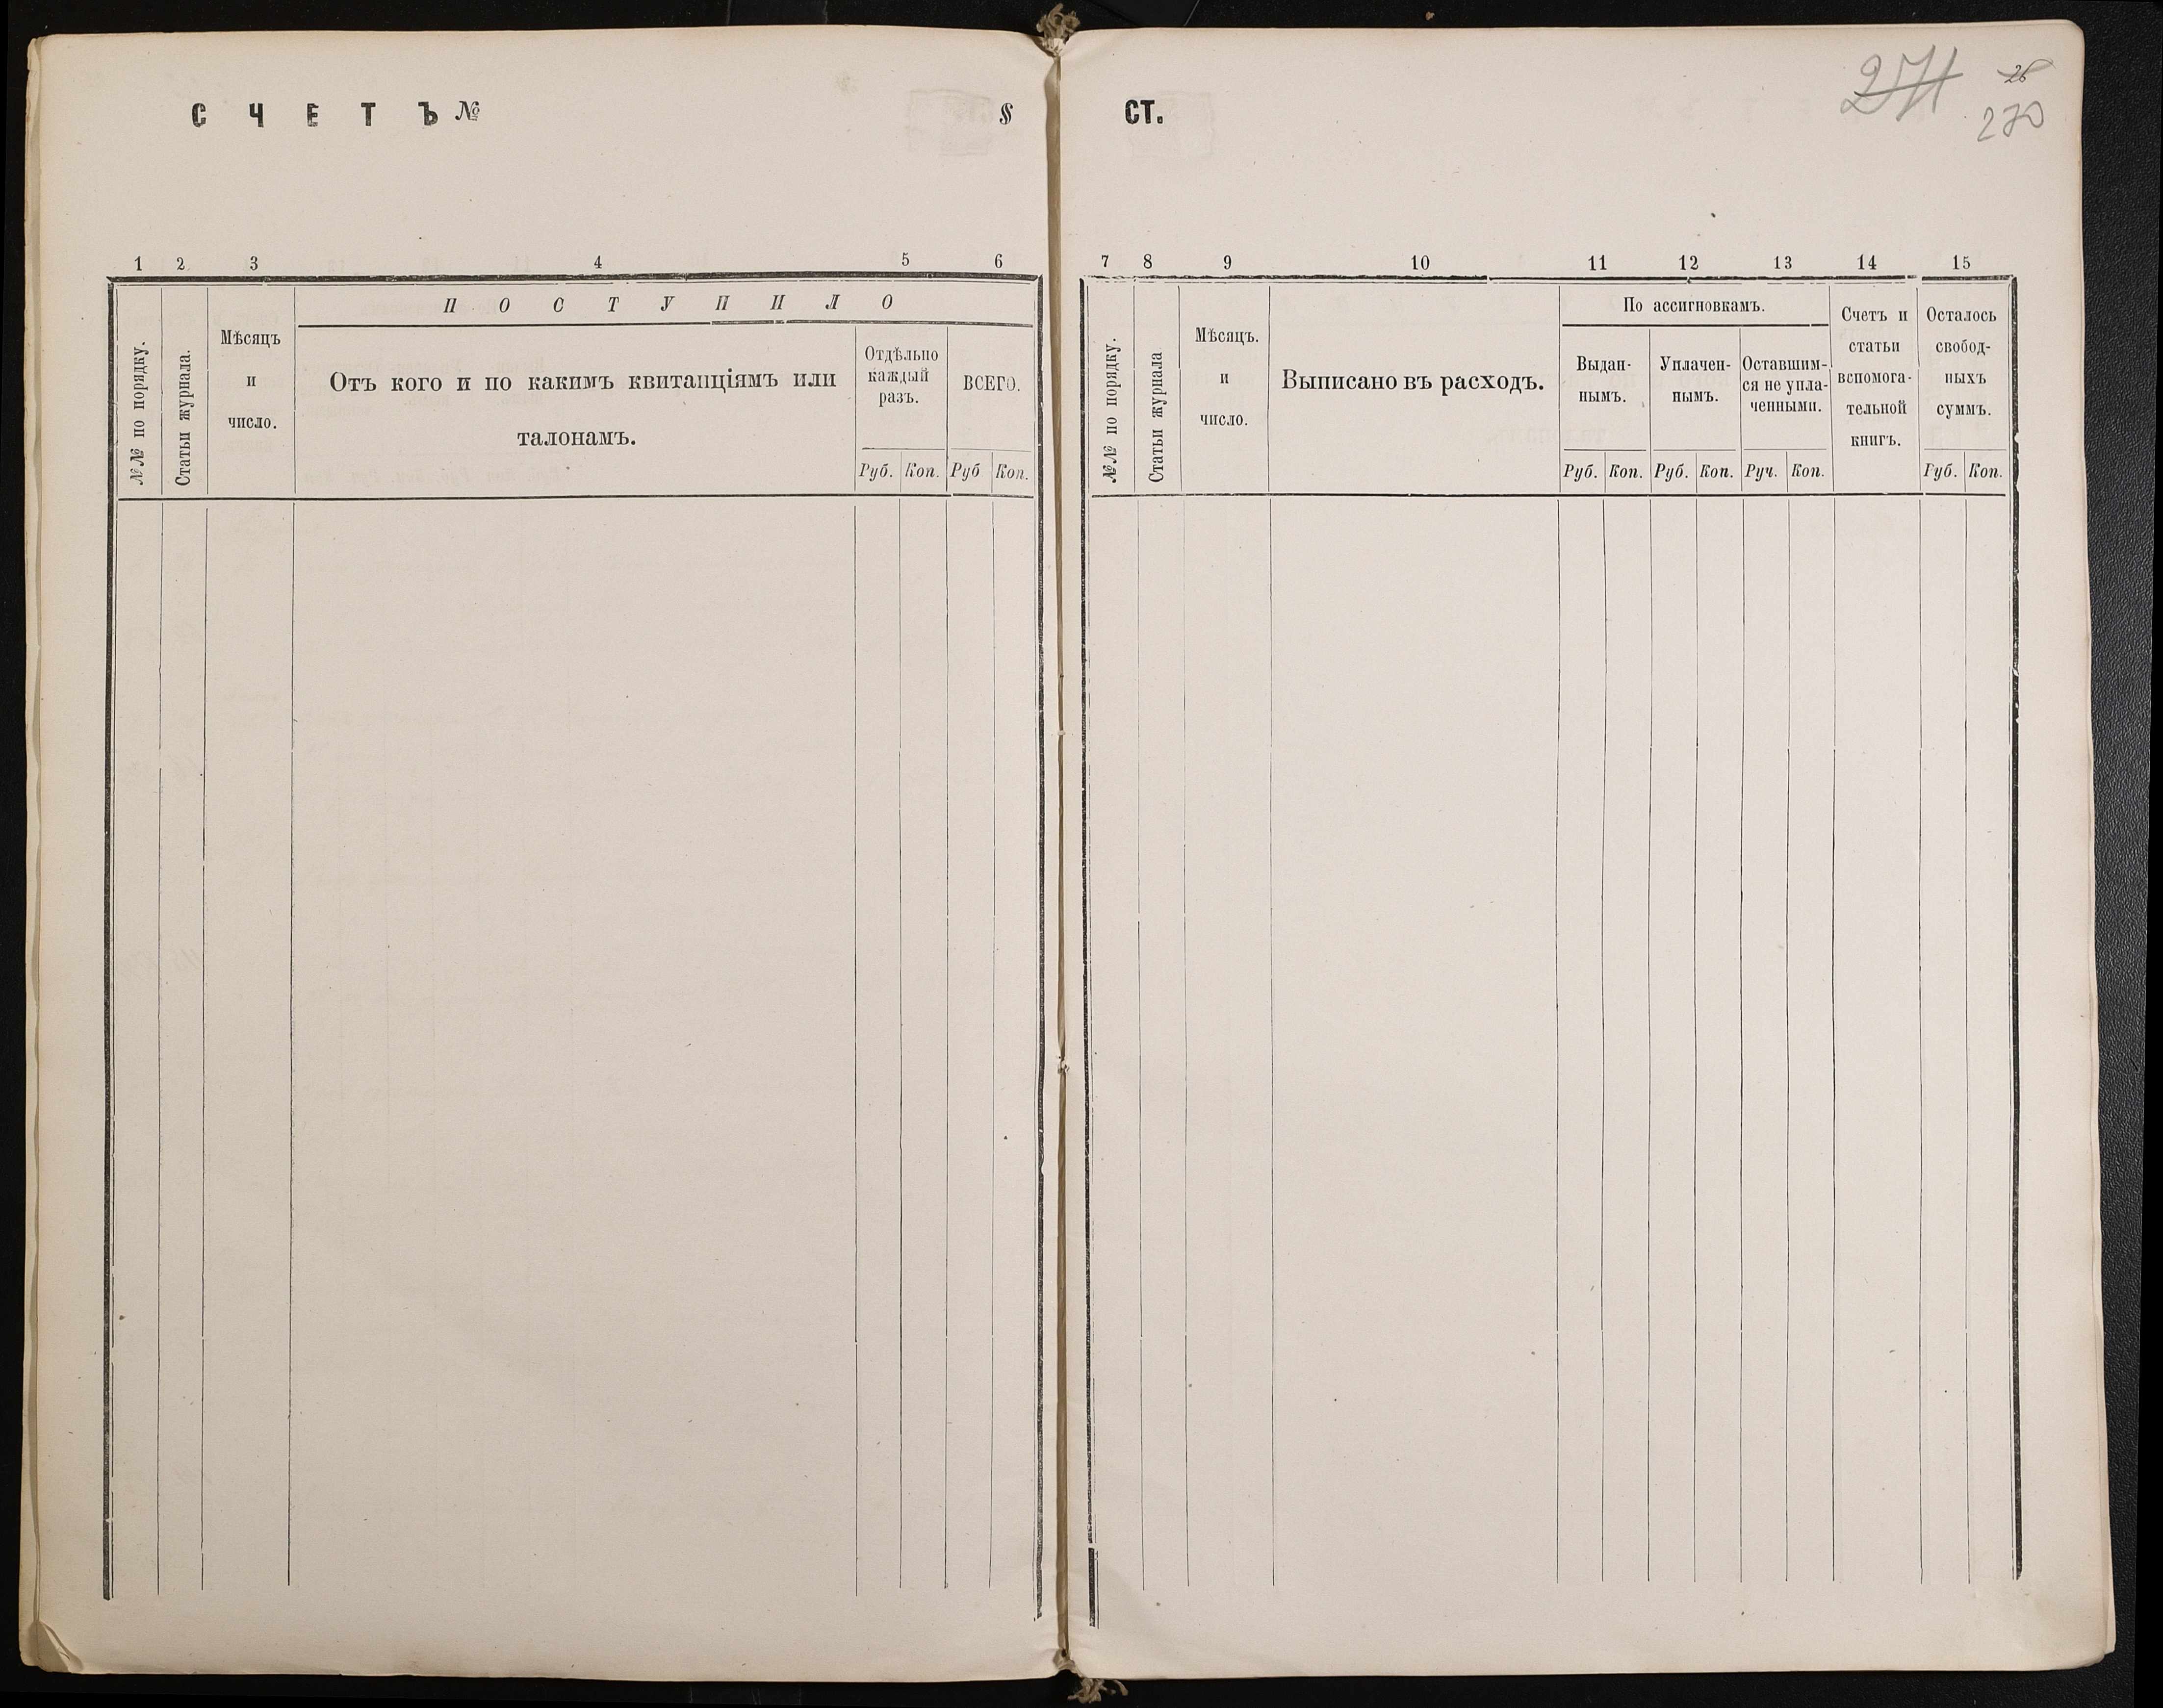 СЧЕТЪ № §
1 2 3 4 5 6
№№ по порядку.
Статьи журнала.
Мѣсяцъ
и
число.
ПОСТУПИЛО
Отъ кого и по какимъ квитанціямъ или
талонамъ.
Отдѣльно
каждый
разъ.
ВСЕГО.
Руб. Коп. Руб Коп.
СТ.
271 26
270
7 8 9 10 11 12 13 14 15
№№ по порядку.
Статьи журнала
Мѣсяцъ.
и
число.
Выписано въ расходъ.
По ассигновкамъ.
Выдан-
нымъ.
Уплачен-
нымъ.
Оставшим-
ся не упла-
ченными.
Счетъ и
статьи
вспомога-
тельной
книгъ.
Осталось
свобод-
ныхъ
суммъ.
Руб. Коп. Руб. Коп. Руч. Коп. Руб. Коп.